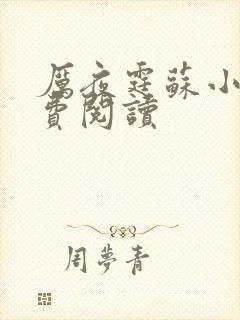 厲夜霆蘇小
費閱讀
周夢青